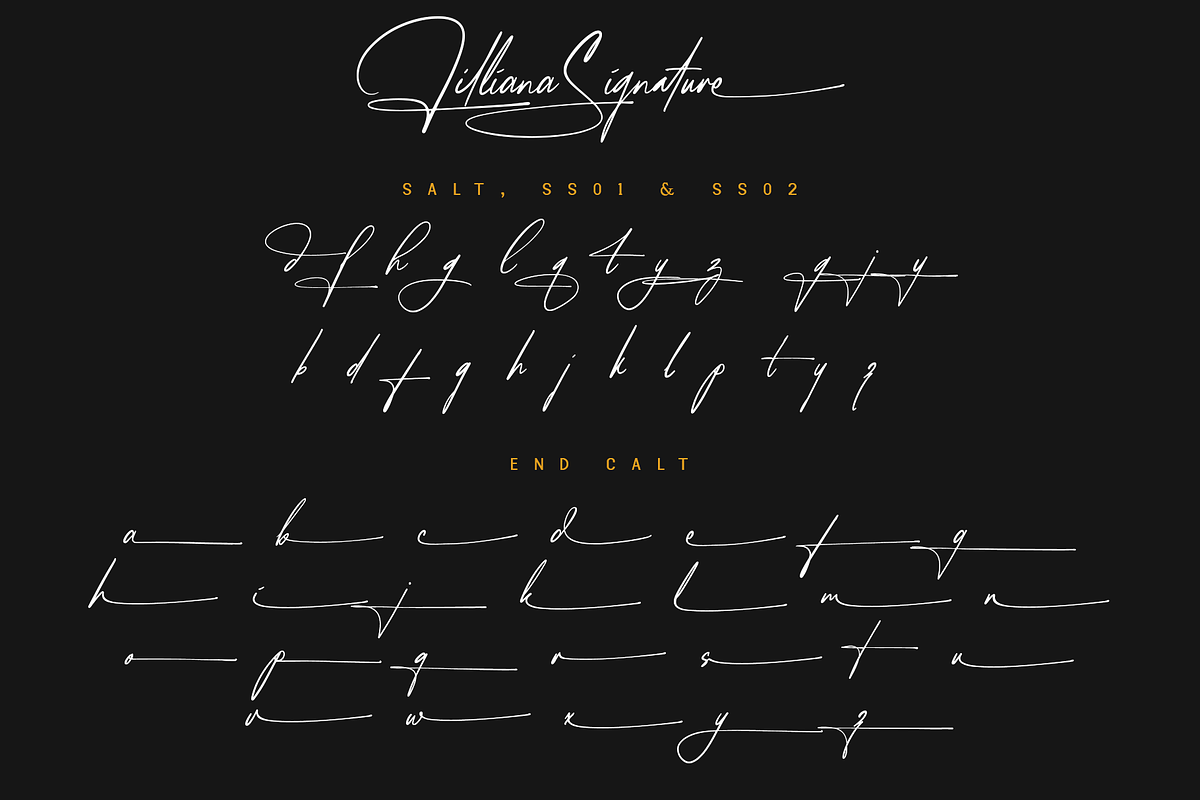 Jilliana Signature
SALT, SS01 & SS02
d f h g l q t y z g j y
b d f g h j k l p t y z
END CALT
a b c d e f g
h i j k l m n
o p q r s t u
v w x y z